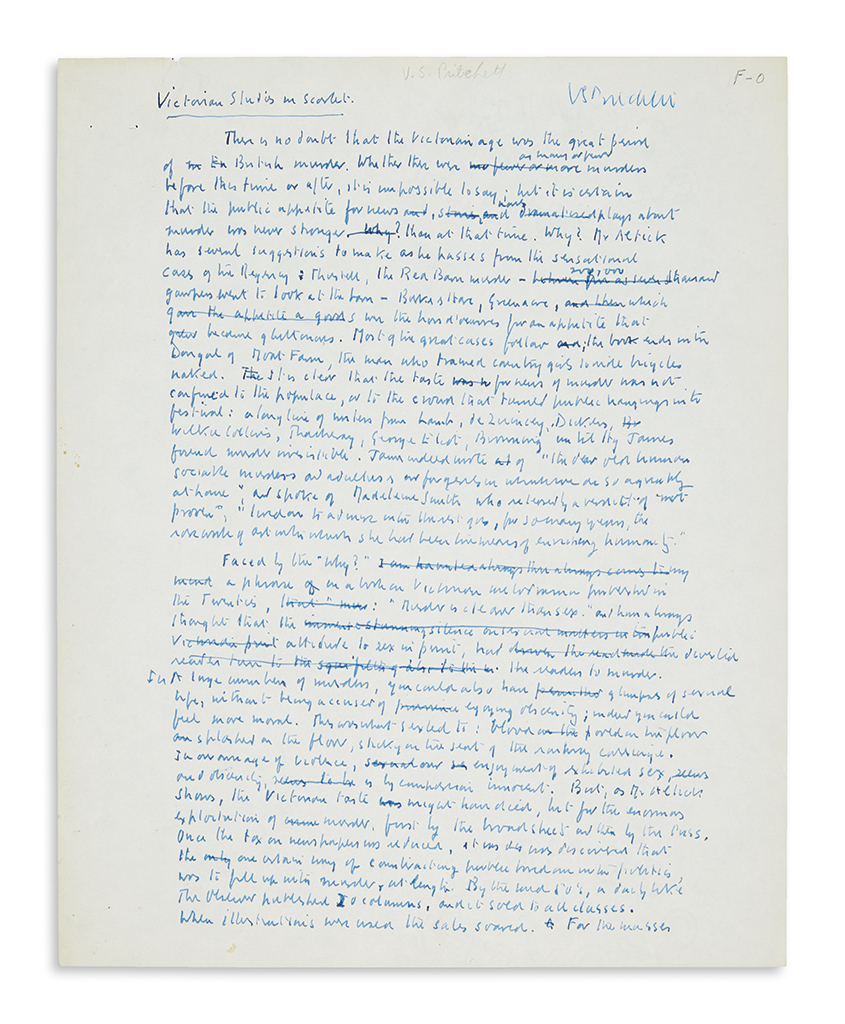 V.S. Pritchett
F-0
Victorian Studies in Scarlet. VS Pritchett
There is no doubt that the Victorian age was the great period
as many or fewer
of in En British murder. Whether there were no fewer or more murders
before this time or after, it is impossible to say; but it is certain
that the public appetite for news and, stories, and dramatised plays about
murder was never stronger. Why? than at that time. Why? Mr Altick
has several suggestions to make as he passes from the sensational
200,000
cases of the Regency: Thurtell, the Red Barn murder – between five as seven thousand
gawpers went to look at the barn – Burke & Hare, Greenacre, and then which
gave the appetite a good were the hors d'oeuvres for an appetite that
grew became gluttonous. Most of the great cases follow and; the book ends with
Dougal of Moat Farm, the man who trained country girls to ride bicycles
naked. The It is clear that the taste was for news of murder was not
confined to the populace, or to the crowd that turned public hangings into
festival: a long line of writers from Lamb, de Quincey, Dickens,
Wilkie Collins, Thackeray, George Eliot, Browning until Hy James
found murder irresistible. James indeed wrote of "the dear old human
sociable murders and adulteries and forgeries in which we are so agreeably
at home", and spoke of Madeleine Smith who received a verdict of "not
proven", "
for so many years, the
rare work of art with which she had been the means of enriching humanity."
Faced by the "Why?" I am haunted always there always comes to my
mind a phrase of in a book on Victorian melodrama published in
the Twenties, that "mur: "Murder is cleaner than sex." and have always
thought that the immense stunning silence on sexual matters in the public
Victorian print attitude to sex in print, had driven the read made the diverted
reader turn to the the readers to murder.
In A large numbers of murders, you could also have glimpses of sexual
life, without being accused of enjoying obscenity; indeed you could
feel more moral. This was what sexed to: blood on the floor
splashed on the floor, sticky on the seat of the railway carriage.
In our own age of violence, sexual our enjoyment of exhibited sex, seems
and obscenity, seems to be is by comparison innocent. But, as Mr Altick
shows, the Victorian taste was might have died, but for the enormous
exploitation of crime murder, first by the broadsheet and then by the Press.
Once the tax on newspapers was reduced, it was discovered that
the only one certain way of counteracting public boredom with politics,
was to fill up with murder, at length. By the mid 50's, a daily like
The Observer published 20 columns, and it sold to all classes.
When illustrations were used the sales soared. For the masses